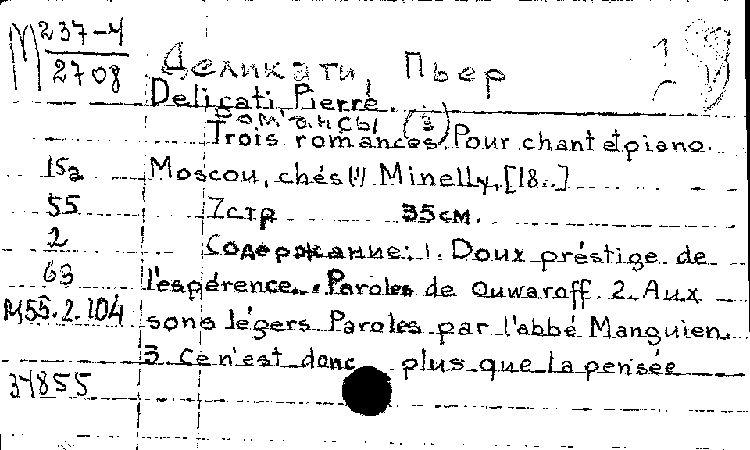 М 237-4
2708
Деликати, Пьер
Delicati Pierre.
Романсы (3)
Trois romances. Pour chant et piano.
15а
Moscou, chés (!) Minelly, [18..]
55
7 стр 35 см.
2
Содержание: 1. Doux préstige de
63
l'espérence. Paroles de Ouwaroff. 2. Aux
М55.2.104
sons légers Paroles par l'abbé Manguien.
3. Ce n'est donc plus que la pensée
37855